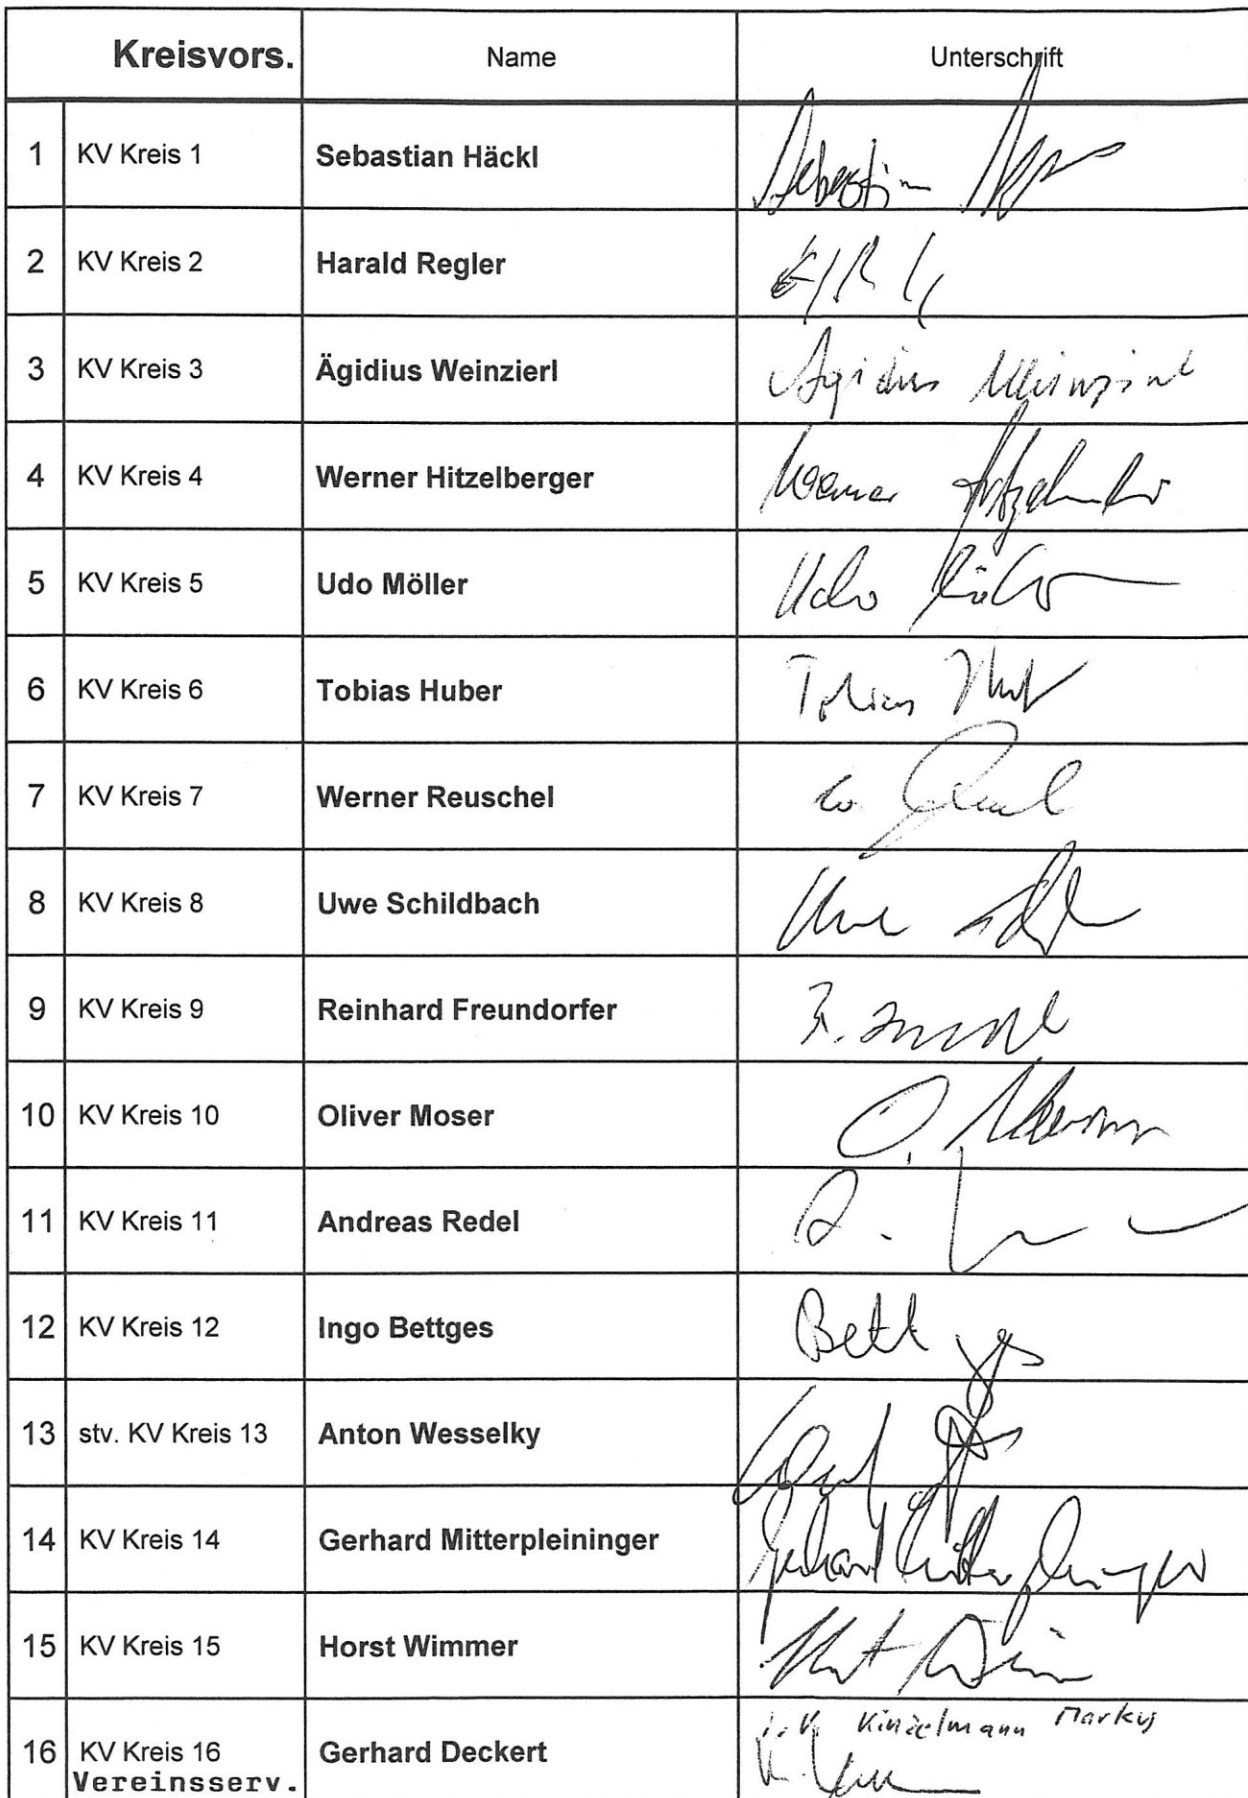 Kreisvors. Name Unterschrift
1 KV Kreis 1 Sebastian Häckl Sebastian
2 KV Kreis 2 Harald Regler
3 KV Kreis 3 Ägidius Weinzierl Ägidius Weinzierl
4 KV Kreis 4 Werner Hitzelberger Werner Hitzelberger
5 KV Kreis 5 Udo Möller Udo Möller
6 KV Kreis 6 Tobias Huber Tobias Huber
7 KV Kreis 7 Werner Reuschel
8 KV Kreis 8 Uwe Schildbach Uwe
9 KV Kreis 9 Reinhard Freundorfer
10 KV Kreis 10 Oliver Moser O. Moser
11 KV Kreis 11 Andreas Redel
12 KV Kreis 12 Ingo Bettges Bettges
13 stv. KV Kreis 13 Anton Wesselky
14 KV Kreis 14 Gerhard Mitterpleininger Gerhard Mitterpleininger
15 KV Kreis 15 Horst Wimmer Horst Wimmer
i.V. Kinzelmann Markus
16 KV Kreis 16 Gerhard Deckert
Vereinsserv.